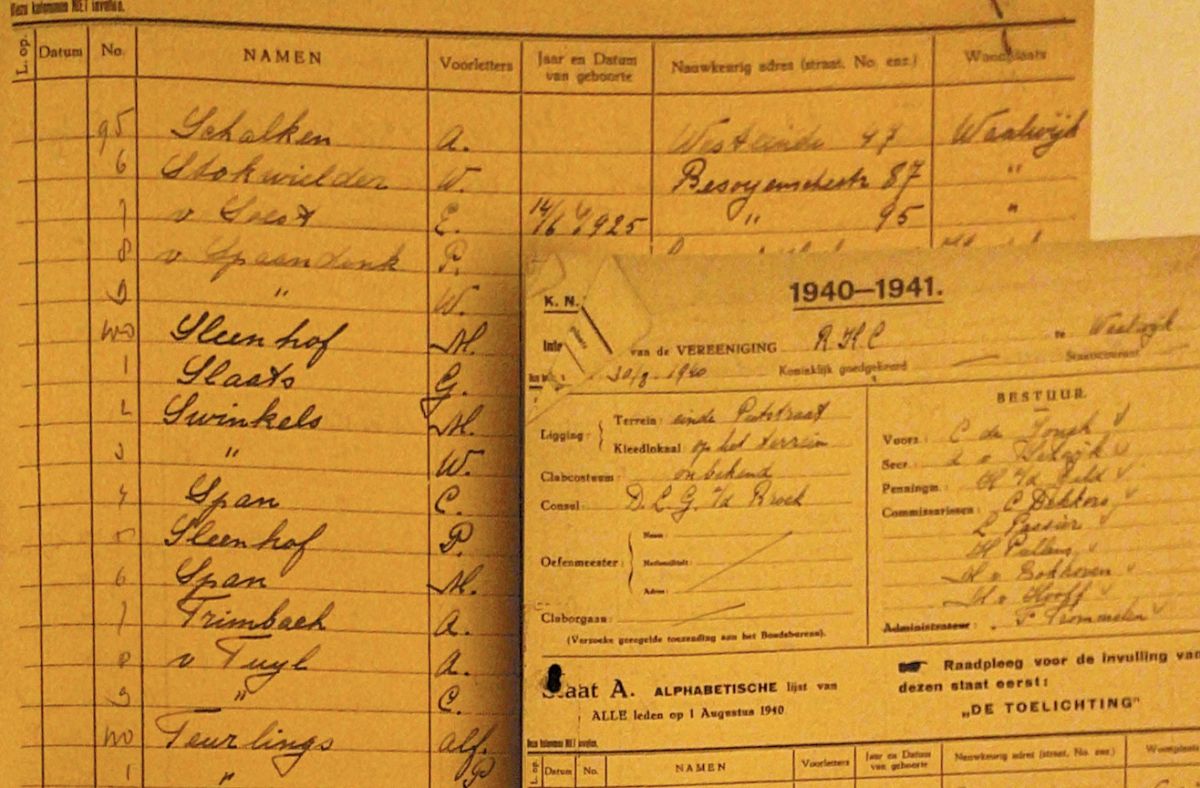 Deze kolommen NIET invullen.
L. op. Datum No. NAMEN Voorletters Jaar en Datum van geboorte Nauwkeurig adres (straat, No. enz.) Woonplaats
95 Schalken A. Westeinde 47 Waalwijk
6 Stokwielder W. Besoyenschestr 87 "
7 v Soest E. 14/6 1925 " 95 "
8 v Spaandonk P.
9 " W.
100 Sleenhof M.
1 Slaats G.
2 Swinkels M.
3 " W.
4 Span C.
5 Sleenhof P.
6 Span M.
7 Trimbach A.
8 v Tuyl A.
9 " C.
110 Teurlings alf.
1 " P
1940—1941.
K. N.
van de VEREENIGING RKC te Waalwijk
1940 Koninklijk goedgekeurd Staatscourant
Ligging: Terrein: einde Putstraat
Kleedlokaal op het terrein
Clubcostuum: onbekend
Consul: D. L. G. v/d Broek
Oefenmeester: Naam:
Nationaliteit:
Adres:
Cluborgaan:
(Verzoeke geregelde toezending aan het Bondsbureau).
BESTUUR.
Voorz.: C de Jongh
Secr.
Penningm. v/d
Commissarissen: C Dekkers
L Passier
H Pullens
v Bokhoven
v Hooff
Administrateur: F Trommelen
Staat A. ALPHABETISCHE lijst van
ALLE leden op 1 Augustus 1940
Raadpleeg voor de invulling van
dezen staat eerst:
„DE TOELICHTING"
Deze kolommen NIET invullen.
L. op. Datum No. NAMEN Voorletters Jaar en Datum van geboorte Nauwkeurig adres (straat, No. enz.) Woonplaats